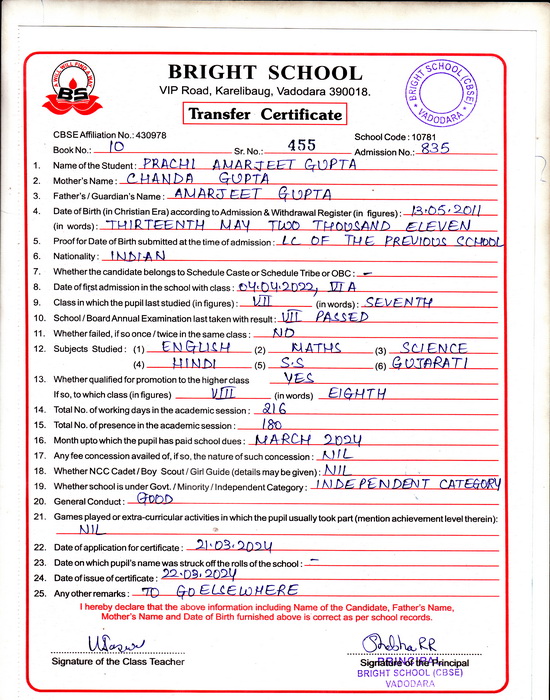 WILL WILL FIND A WAY
BS
BRIGHT SCHOOL
VIP Road, Karelibaug, Vadodara 390018.
Transfer Certificate
BRIGHT SCHOOL (CBSE)
VADODARA
CBSE Affiliation No.: 430978 School Code : 10781
Book No.: 10 Sr. No.: 455 Admission No.: 835
1. Name of the Student: PRACHI AMARJEET GUPTA
2. Mother's Name: CHANDA GUPTA
3. Father's / Guardian's Name: AMARJEET GUPTA
4. Date of Birth (in Christian Era) according to Admission & Withdrawal Register (in figures): 13.05.2011
(in words): THIRTEENTH MAY TWO THOUSAND ELEVEN
5. Proof for Date of Birth submitted at the time of admission: LC OF THE PREVIOUS SCHOOL
6. Nationality: INDIAN
7. Whether the candidate belongs to Schedule Caste or Schedule Tribe or OBC: -
8. Date of first admission in the school with class: 04.04.2022, VI A
9. Class in which the pupil last studied (in figures): VII (in words): SEVENTH
10. School / Board Annual Examination last taken with result: VII PASSED
11. Whether failed, if so once / twice in the same class: NO
12. Subjects Studied: (1) ENGLISH (2) MATHS (3) SCIENCE
(4) HINDI (5) S.S (6) GUJARATI
13. Whether qualified for promotion to the higher class YES
If so, to which class (in figures) VIII (in words) EIGHTH
14. Total No. of working days in the academic session: 216
15. Total No. of presence in the academic session: 180
16. Month upto which the pupil has paid school dues: MARCH 2024
17. Any fee concession availed of, if so, the nature of such concession: NIL
18. Whether NCC Cadet / Boy Scout / Girl Guide (details may be given): NIL
19. Whether school is under Govt. / Minority / Independent Category: INDEPENDENT CATEGORY
20. General Conduct: GOOD
21. Games played or extra-curricular activities in which the pupil usually took part (mention achievement level therein):
NIL
22. Date of application for certificate: 21.03.2024
23. Date on which pupil's name was struck off the rolls of the school: -
24. Date of issue of certificate: 22.03.2024
25. Any other remarks: TO GO ELSEWHERE
I hereby declare that the above information including Name of the Candidate, Father's Name,
Mother's Name and Date of Birth furnished above is correct as per school records.
Signature of the Class Teacher Signature of the Principal
PRINCIPAL
BRIGHT SCHOOL (CBSE)
VADODARA